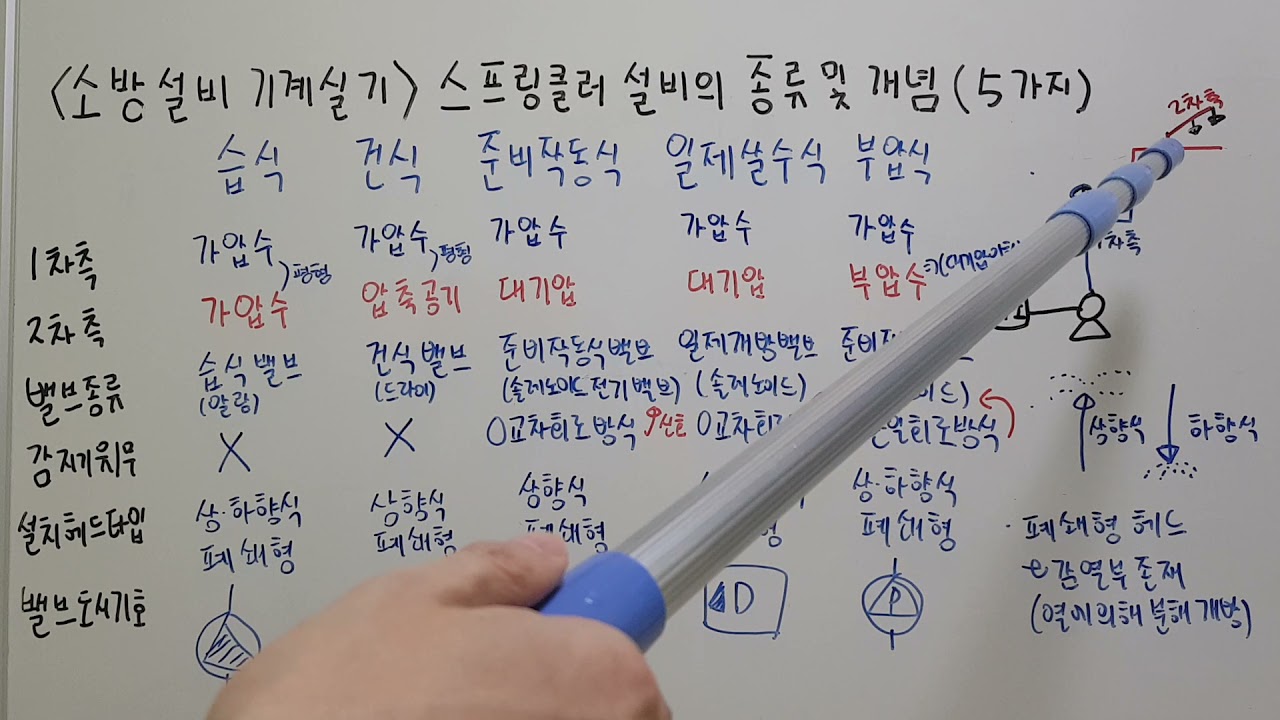 <소방설비 기계실기> 스프링클러 설비의 종류 및 개념 (5가지)
습식 건식 준비작동식 일제살수식 부압식
2차측
1차측 가압수 가압수 가압수 가압수 가압수
평형 평형
차측
2차측 가압수 압축공기 대기압 대기압 부압수
밸브종류 습식밸브 건식밸브 준비작동식밸브 일제개방밸브
(알람) (드라이) (솔레노이드전기밸브) (솔레노이드)
감지기유무 X X O교차회로방식 신호 O교차회로방식
상향식 하향식
설치헤드타입 상·하향식 상향식 상향식 상·하향식
폐쇄형 폐쇄형 폐쇄형 폐쇄형
밸브도시기호 D P
·폐쇄형 헤드
감열부 존재
(열에의해 분해 개방)